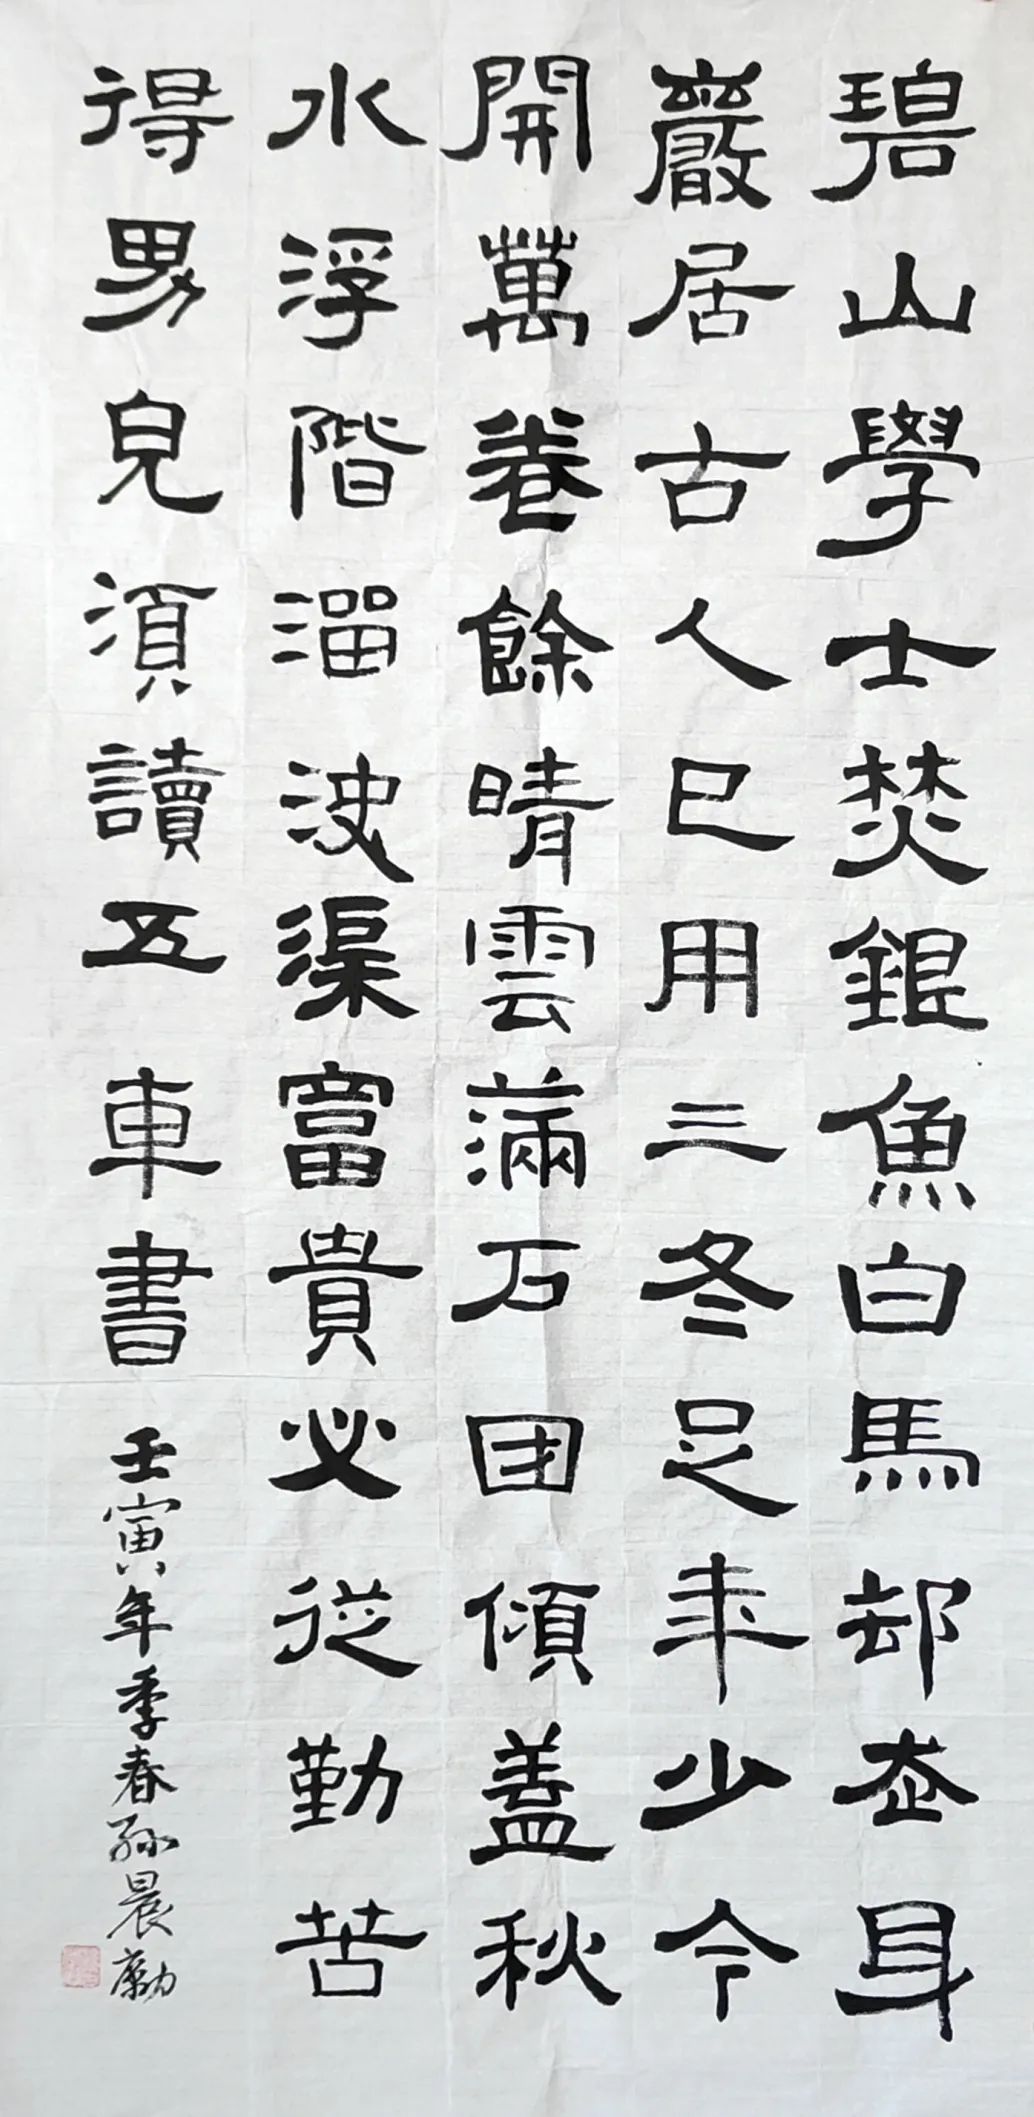 碧山學士焚銀魚白馬却走身
巖居古人已用三冬足年少今
開萬卷餘晴雲滿户团傾蓋秋
水浮階溜決渠富貴必從勤苦
得男兒須讀五車書 壬寅年季春孫晨勵